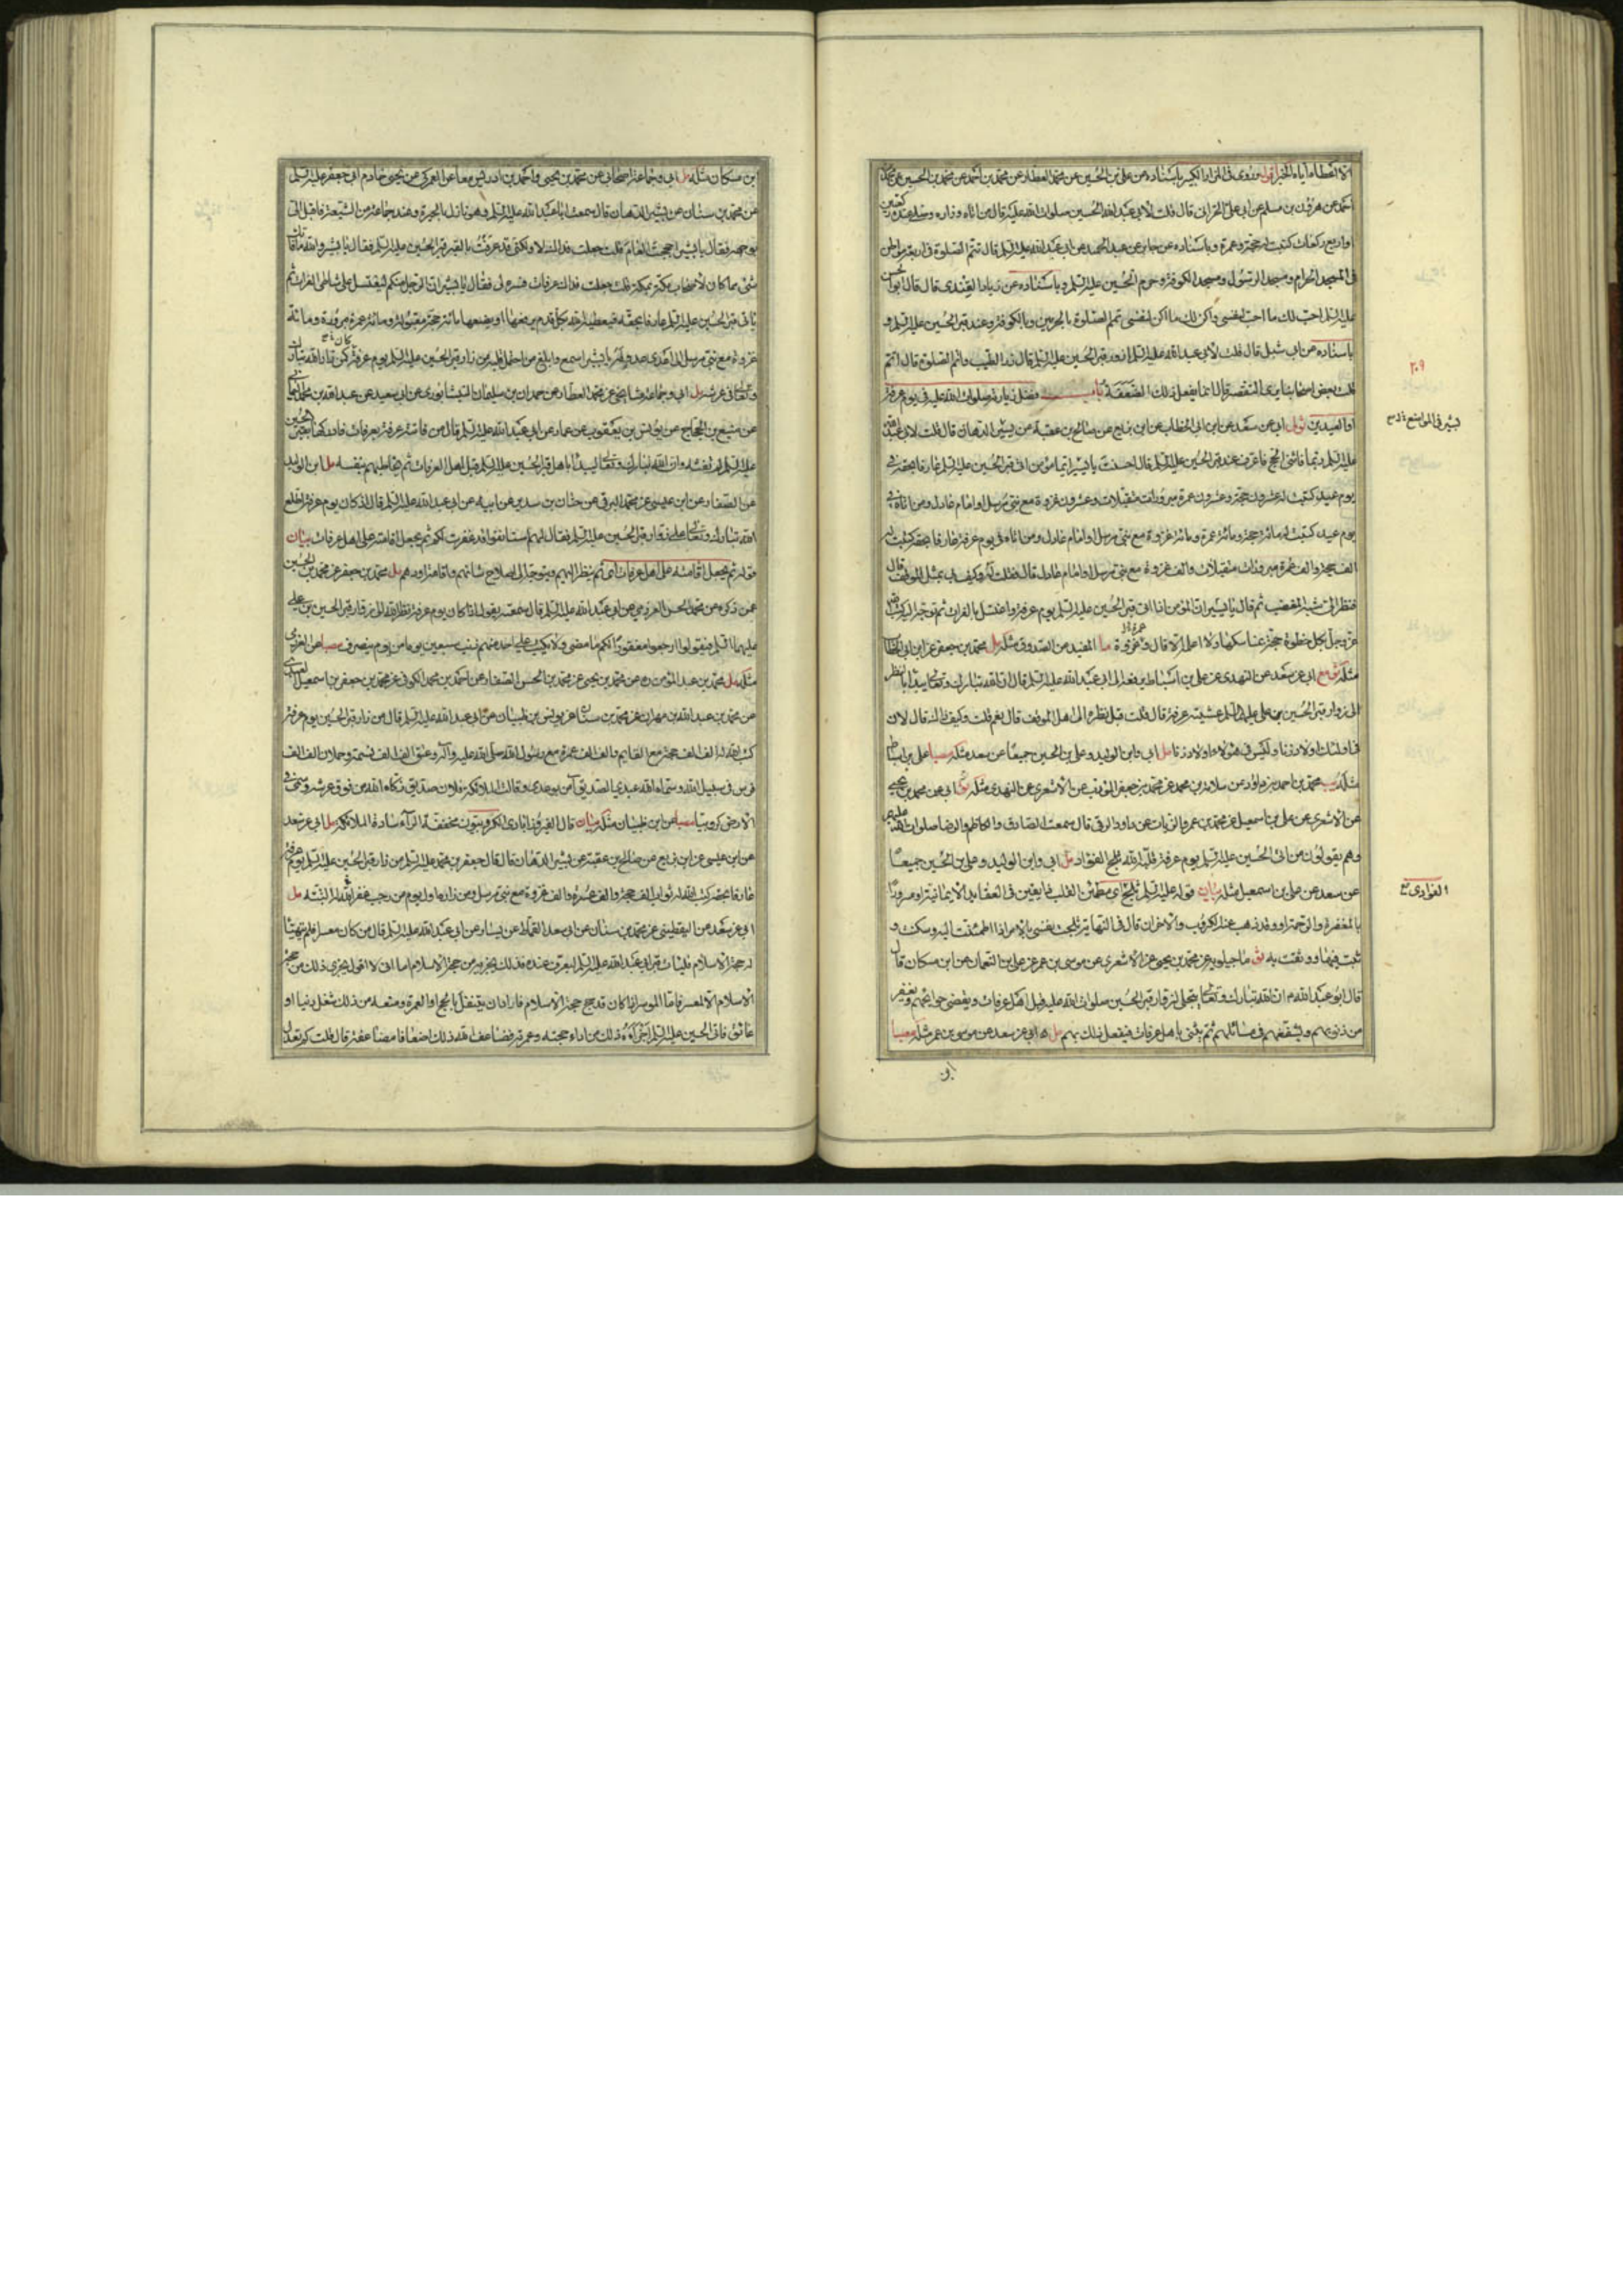 احمد عن هرون بن مسلم عن ابي علي الحراني قال قلت لابي عبد الله الحسين صلوات الله عليه قال من اتاه وزاره وصلى عنده ركعتين
او اربع ركعات كتبت له حجة وعمرة وباسناده عن عبد الحميد عن ابي عبد الله عليه السلم قال تتم الصلوة في اربعة مواطن
في المسجد الحرام ومسجد الرسول ومسجد الكوفة وحرم الحسين عليه السلم وباسناده عن زياد القندي قال قال ابو الحسن
عليه السلم احب لك ما احب لنفسي واكره لك ما اكره لنفسي تمم الصلوة بالحرمين وبالكوفة وعند قبر الحسين عليه السلم و
باسناده عن ابي شبل قال قلت لابي عبد الله عليه السلم ازور قبر الحسين عليه السلم قال زر الطيب واتم الصلوة قال اتم
قلت بعض اصحابنا يرى التقصير قال انما يفعل ذلك الضعفة باب فضل زيارته صلوات الله عليه في يوم عرفة
او العيدين ابي عن سعد عن ابن ابي الخطاب عن ابن بزيع عن صالح بن عقبة عن بشير الدهان قال قلت لابي عبد الله
عليه السلم ربما فاتني الحج فاعرف عند قبر الحسين عليه السلم قال احسنت يا بشير ايما مؤمن اتى قبر الحسين عليه السلم عارفا بحقه في
يوم عيد كتبت له عشرون حجة وعشرون عمرة مبرورات متقبلات وعشرون غزوة مع نبي مرسل او امام عادل ومن اتاه في
يوم عيد كتبت له مائة حجة ومائة عمرة ومائة غزوة مع نبي مرسل او امام عادل ومن اتاه في يوم عرفة عارفا بحقه كتبت له
الف حجة والف عمرة مبرورات متقبلات والف غزوة مع نبي مرسل او امام عادل قال فقلت له وكيف لي بمثل الموقف قال
فنظر الي شبه المغضب ثم قال يا بشير ان المؤمن اذا اتى قبر الحسين عليه السلم يوم عرفة واغتسل بالفرات ثم توجه اليه كتب الله
عز وجل بكل خطوة حجة بمناسكها ولا اعلم الا قال وغزوة ما المفيد عن الصدوق مثله مل محمد بن جعفر عن ابن ابي الخطاب
مثله ابي عن سعد عن النهدي عن علي بن اسباط يرفعه الى ابي عبد الله عليه السلم قال ان الله تبارك وتعالى يبدأ بالنظر
الى زوار قبر الحسين بن علي عليه السلم عشية عرفة قال قلت قبل نظره الى اهل الموقف قال نعم قلت وكيف ذاك قال لان
في اولئك اولاد زنا وليس في هؤلاء اولاد زنا مل ابي وابن الوليد وعلي بن الحسين جميعا عن سعد مثله مصبا علي بن اسباط
مثله محمد بن احمد بن داود عن سلامة بن محمد عن محمد بن جعفر المؤدب عن الاشعري عن النهدي مثله ابي عن محمد بن يحيى
عن الاشعري عن علي بن اسمعيل عن محمد بن عمرو الزيات عن داود الرقي قال سمعت الصادق والكاظم والرضا صلوات الله عليهم
وهم يقولون من اتى الحسين عليه السلم يوم عرفة قلبه الله ثلج الفؤاد مل ابي وابن الوليد وعلي بن الحسين جميعا
عن سعد عن علي بن اسمعيل مثله بيان قوله عليه السلم ثلج اي مطمئن القلب ذا يقين في العقايد الايمانية او مسرورا
بالمغفرة والرحمة او وقد ذهب عنه الكروب والاحزان قال في النهاية ثلجت نفسي بالامر اذا اطمئنت اليه وسكنت و
ثبت فيها ووثقت به ثو ماجيلويه عن محمد بن يحيى عن الاشعري عن موسى بن عمر عن علي بن النعمان عن ابن مسكان قال
قال ابو عبد الله ان الله تبارك وتعالى يتجلى لزوار قبر الحسين صلوات الله عليه قبل اهل عرفات ويقضي حوائجهم ويغفر
من ذنوبهم ويشفعهم في مسائلهم ثم يثني باهل عرفات فيفعل ذلك بهم مل ابي عن سعد عن موسى بن عمر مثله مصبا
ابن
٢٠٩
ابن مسكان مثله مل ابي وجماعة اصحابي عن محمد بن يحيى واحمد بن ادريس معا عن العمركي عن يحيى خادم ابي جعفر عليه السلم
عن محمد بن سنان عن بشير الدهان قال سمعت ابا عبد الله عليه السلم وهو نازل بالحيرة وعنده جماعة من الشيعة فاقبل الي
بوجهه فقال يا بشير احججت العام قلت جعلت فداك لا ولكني قد عرفت بالقبر قبر الحسين عليه السلم فقال يا بشير والله ما فاتك
شئ مما كان لاصحاب مكة بمكة قلت جعلت فداك عرفات فسره لي فقال يا بشير ان الرجل منكم ليغتسل على شاطئ الفرات ثم
ياتي قبر الحسين عليه السلم عارفا بحقه فيعطيه الله بكل قدم يرفعها او يضعها مائة حجة مقبولة ومائة عمرة مبرورة ومائة
غزوة مع نبي مرسل الى اعدى عدو له يا بشير اسمع وابلغ من احتمل قلبه من زار قبر الحسين عليه السلم يوم عرفة كان كمن زار الله تبارك
وتعالى في عرشه مل ابي وجماعة مشايخي عن محمد العطار عن حمدان بن سليمان النيشابوري عن ابي سعيد عن عبد الله بن محمد اليماني
عن منيع بن الحجاج عن يونس بن يعقوب عن عمار عن ابي عبد الله عليه السلم قال من فاتته عرفة بعرفات فادركها بقبر الحسين
عليه السلم لم يفته وان الله تبارك وتعالى ليبدأ باهل قبر الحسين عليه السلم قبل اهل العرفات ثم يخاطبهم بنفسه مل ابن الوليد
عن الصفار عن ابن عيسى عن محمد البرقي عن حنان بن سدير عن ابيه عن ابي عبد الله عليه السلم قال اذا كان يوم عرفة اطلع
الله تبارك وتعالى على زوار قبر الحسين عليه السلم فقال لهم استانفوا فقد غفرت لكم ثم يجعل اقامته على اهل عرفات بيان
قوله ثم يجعل اقامته على اهل عرفات اي ثم ينظر اليهم ويتوجه الى اصلاح شانهم واقامة اودهم مل محمد بن جعفر عن محمد بن الحسين
عمن ذكره عن محمد بن الحسن العرزمي عن ابي عبد الله عليه السلم قال سمعته يقول اذا كان يوم عرفة نظر الله الى زوار قبر الحسين بن علي
عليهما السلم فيقول ارجعوا مغفورا لكم ما مضى ولا يكتب على احد منهم ذنب سبعين يوما من يوم ينصرف مصبا عن العرزمي
مثله مل محمد بن عبد المؤمن عن محمد بن يحيى عن محمد بن الحسن الصفار عن احمد بن محمد الكوفي عن محمد بن جعفر بن اسمعيل العبدي
عن محمد بن عبد الله بن مهران عن محمد بن سنان عن يونس بن ظبيان عن ابي عبد الله عليه السلم قال من زار قبر الحسين يوم عرفة
كتب الله له الف الف حجة مع القايم والف الف عمرة مع رسول الله صلى الله عليه وآله وعتق الف الف نسمة وحملان الف الف
فرس في سبيل الله وسماه الله عبدي الصديق آمن بوعدي وقالت الملائكة فلان صديق زكاه الله من فوق عرشه وسمي في
الارض كروبيا مصبا عن ابن ظبيان مثله بيان قال الفيروزابادي الكروبيون مخففة الراء سادة الملائكة مل ابي عن سعد
عن ابن عيسى عن ابن بزيع عن صالح بن عقبة عن بشير الدهان قال قال جعفر بن محمد عليه السلم من زار قبر الحسين عليه السلم يوم عرفة
عارفا بحقه كتب الله له ثواب الف حجة والف عمرة والف غزوة مع نبي مرسل ومن زاره اول يوم من رجب غفر الله له البتة مل
ابي عن سعد عن اليقطيني عن محمد بن سنان عن ابي سعيد القماط عن يسار عن ابي عبد الله عليه السلم قال من كان معسرا فلم يتهيأ
له حجة الاسلام فليات قبر ابي عبد الله عليه السلم ليعرف عنده فذلك يجزيه من حجة الاسلام اما اني لا اقول يجزي ذلك من حجة
الاسلام الا لمعسر فاما الموسر اذا كان قد حج حجة الاسلام فاراد ان يتنفل بالحج او العمرة ومنعه من ذلك شغل دنيا او
عائق فاتى الحسين عليه السلم اجزأه ذلك من اداء حجته وعمرته فضاعف الله ذلك اضعافا مضاعفة قال قلت كم تعدل